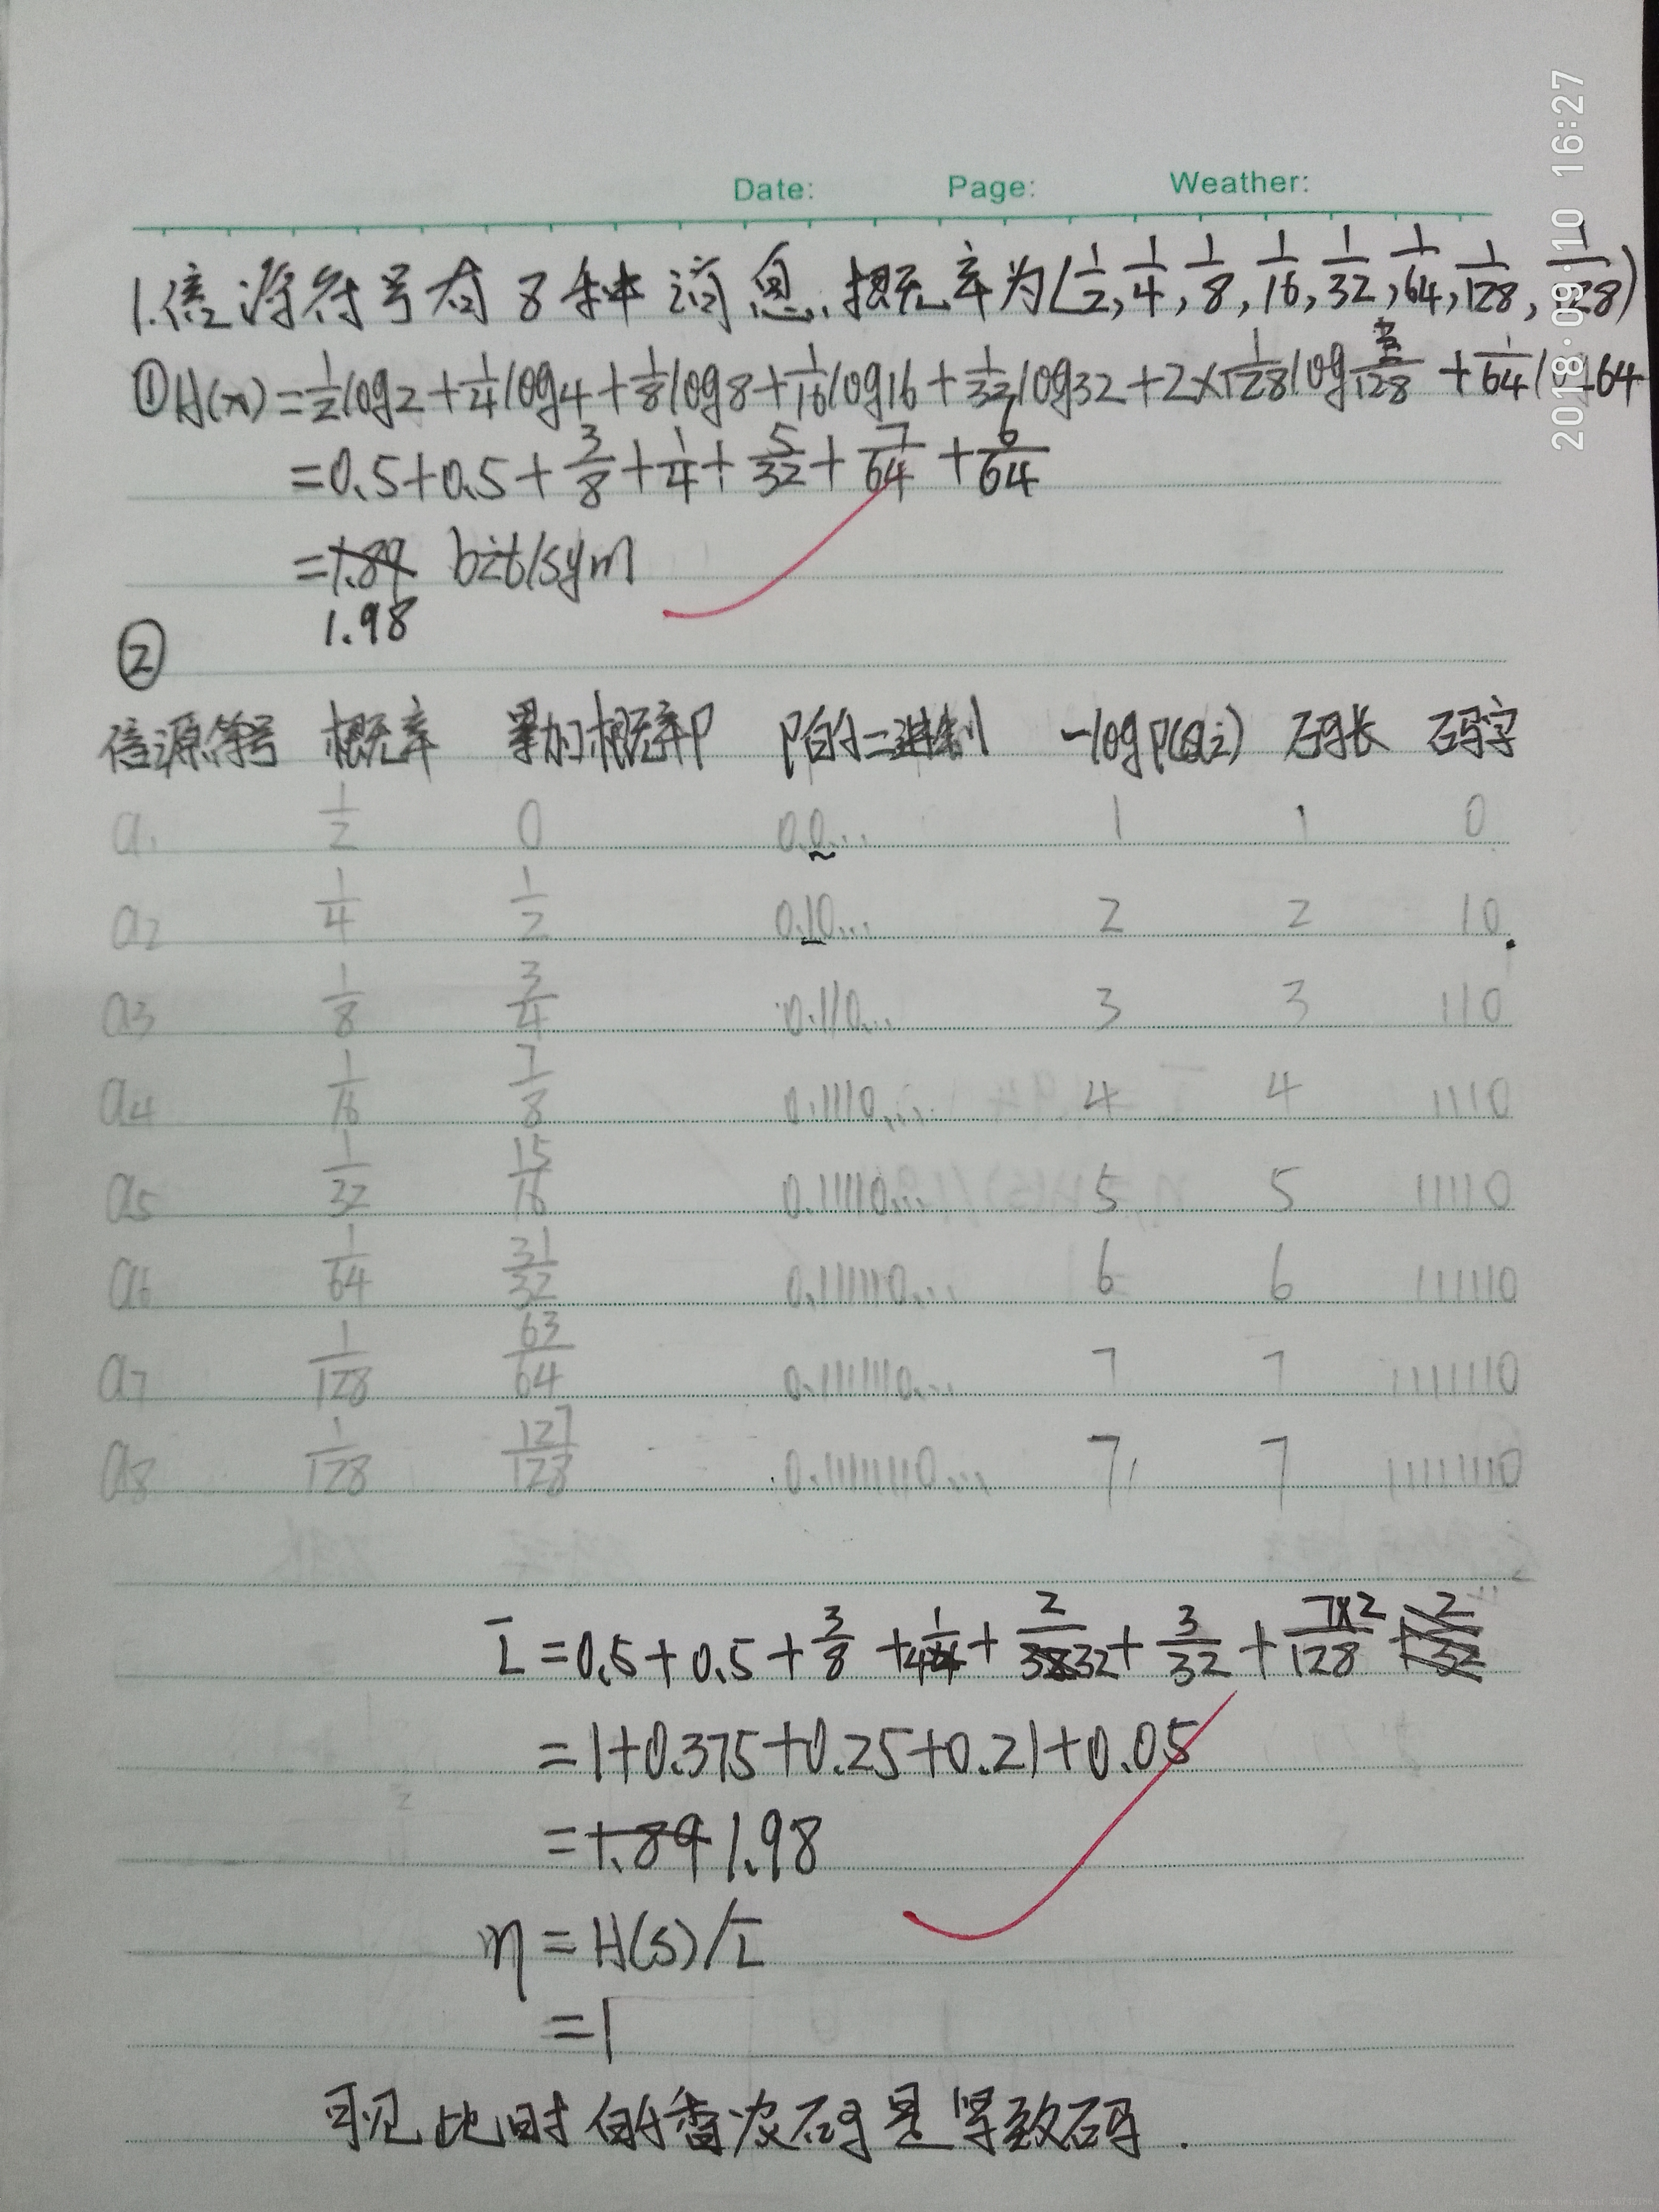 2018·09·10 16:27
Date: Page: Weather:
1.信源符号有8种消息,概率为(1/2,1/4,1/8,1/16,1/32,1/64,1/128,1/128)
①H(x)=1/2log2+1/4log4+1/8log8+1/16log16+1/32log32+2×1/128log128+1/64log64
=0.5+0.5+3/8+1/4+5/32+7/64+6/64
=1.89 bit/sym
1.98
②
信源符号 概率 累加概率P P的二进制 -logP(ai) 码长 码字
a1 1/2 0 0.0... 1 1 0
a2 1/4 1/2 0.10... 2 2 10
a3 1/8 3/4 0.110... 3 3 110
a4 1/16 7/8 0.1110... 4 4 1110
a5 1/32 15/16 0.11110... 5 5 11110
a6 1/64 31/32 0.111110... 6 6 111110
a7 1/128 63/64 0.1111110... 7 7 1111110
a8 1/128 127/128 0.11111110... 7 7 11111110
L̄=0.5+0.5+3/8+1/4+2/32+3/32+7×2/128
=1+0.375+0.25+0.21+0.05
=1.89 1.98
η=H(s)/L̄
=1
可见此时的香农码是紧致码.